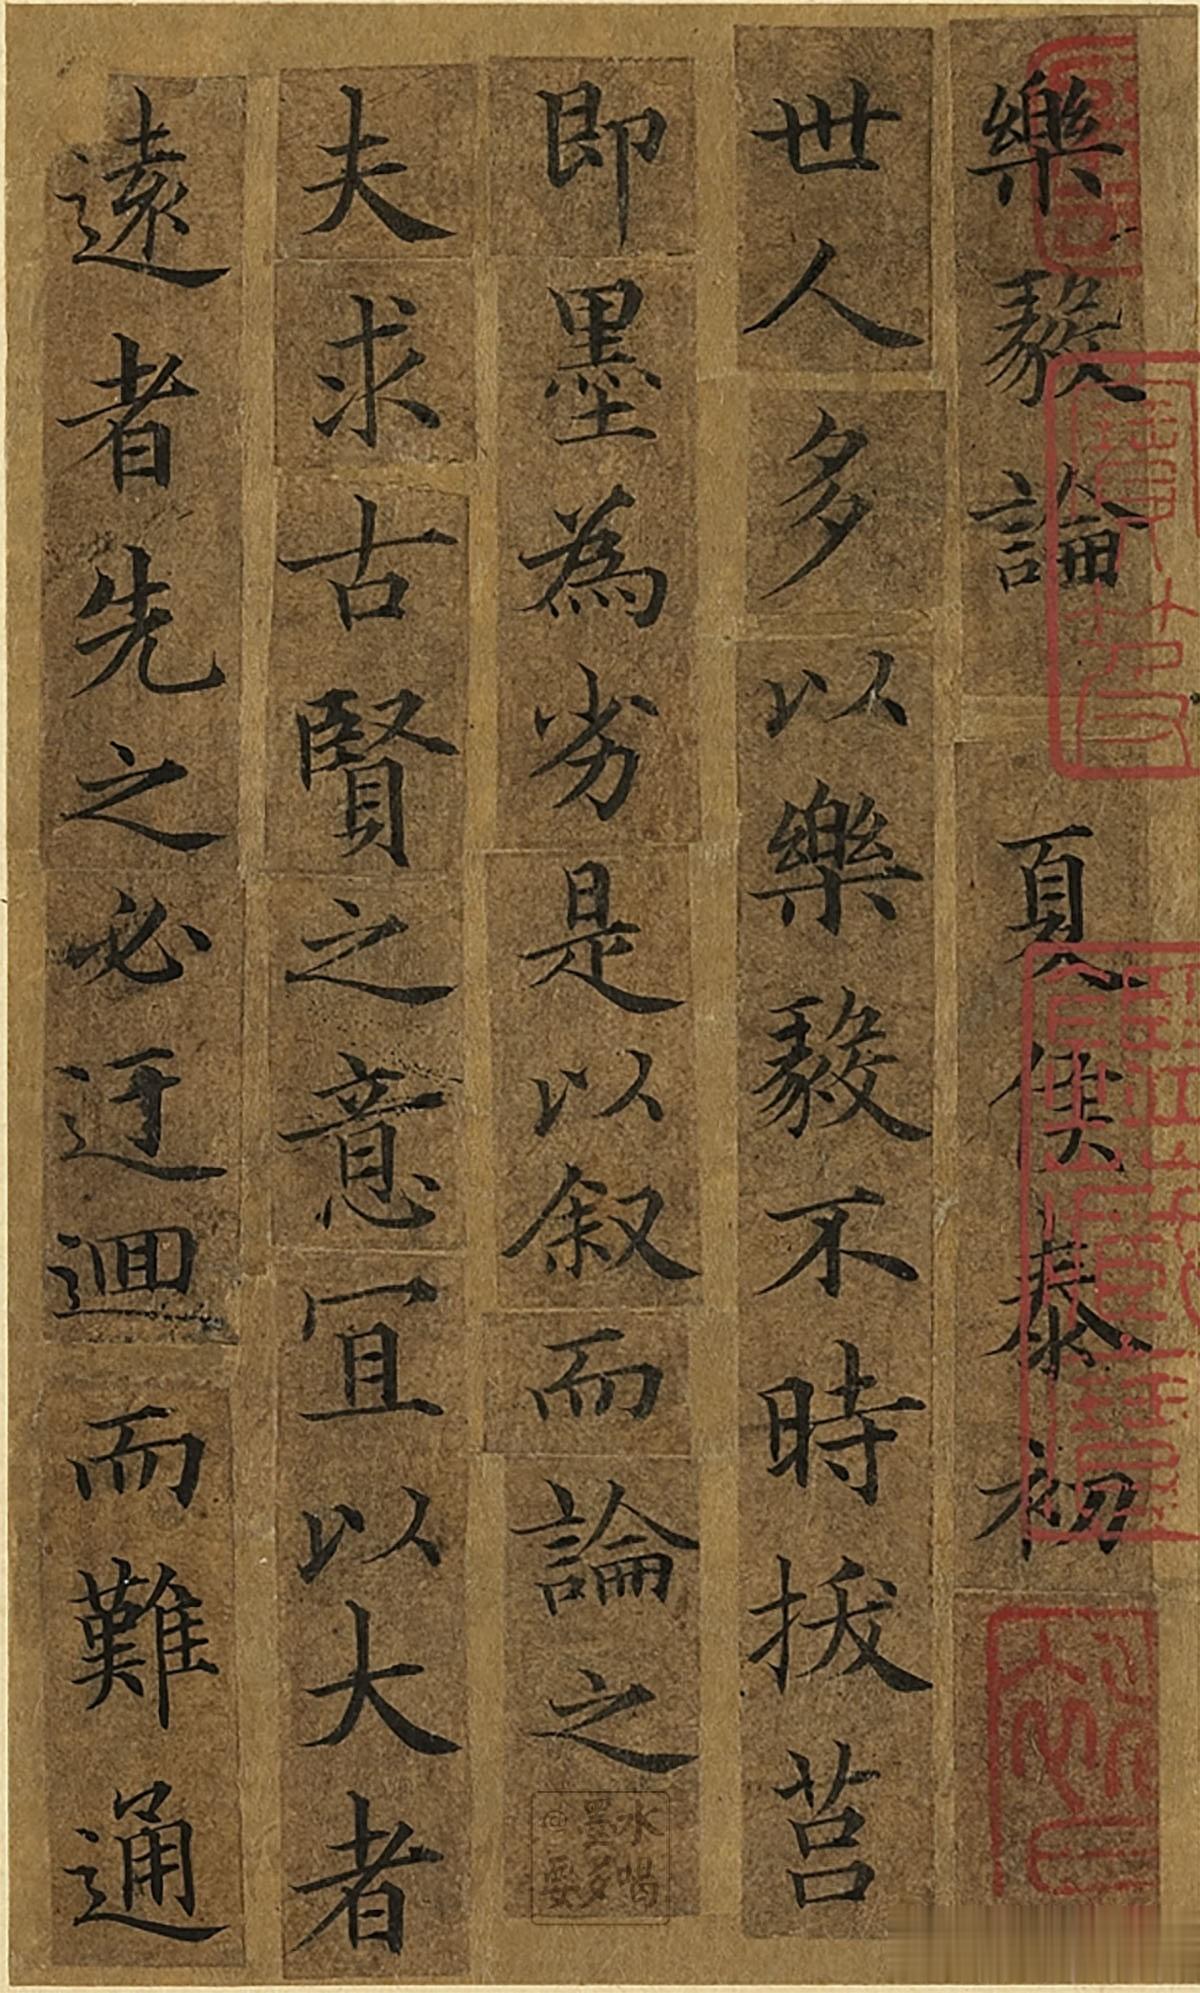 樂毅論 夏侯泰初
世人多以樂毅不時拔莒
即墨為劣是以叙而論之
夫求古賢之意宜以大者
遠者先之必迂迴而難通
@墨水
要多喝